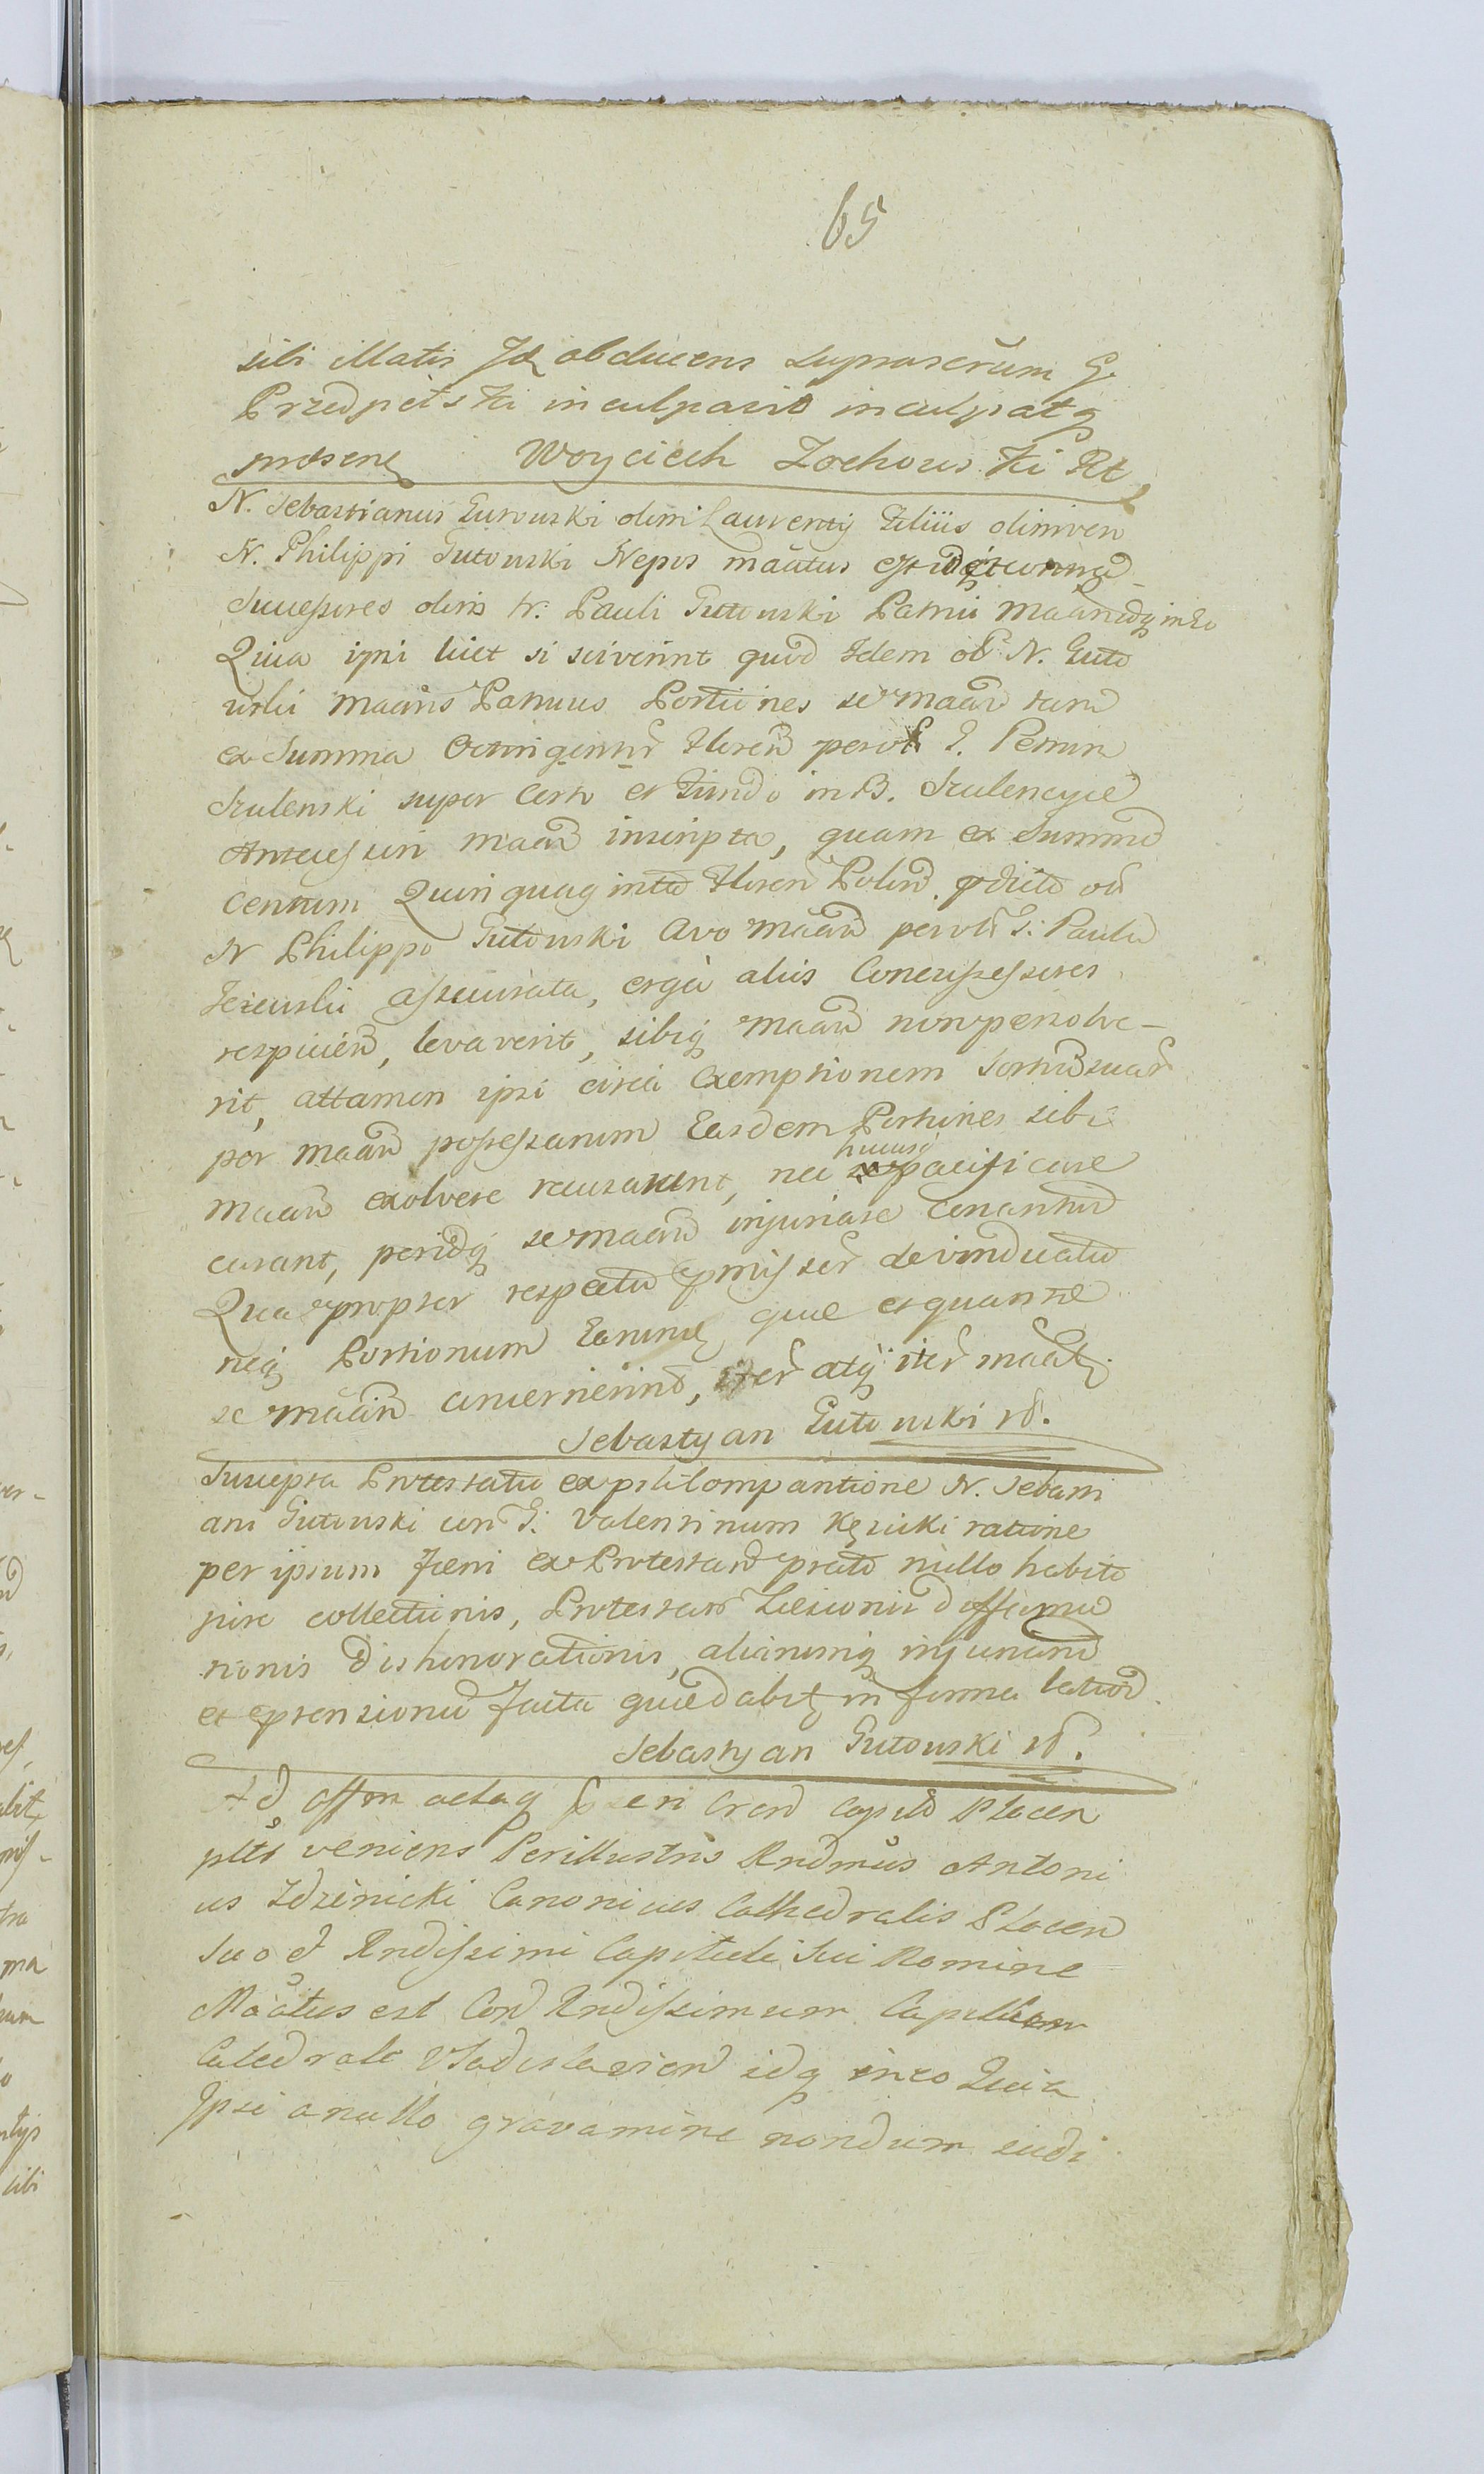 65
sibi illatis Id obducens suprascrum G.
Przedpełski inculpavit inculpatq
præsene Woyciech Zochowski Rt
N. Sebastianus Gutowski olim Laurentij Filius olim vero
N. Philippi Gutowski Nepos maatus est contra
Successores olim N. Pauli Gutowski Patrui maandq in Eo
Quia ipsi licet si sciverint quod Idem ol N. Guto
wski maanis Patruus Portiones se maan tam
ex Summa Octingentor Floren per ol G. Petrum
Szulenski super Certo et Fundo in B. Szulencyce
Antecessori maan inscripta, quam ex Summa
Centum Quinquaginta Floren Polon. prdicto ol
N Philippo Gutowski Avo maan per ol G. Paulu
Jezewski assecurata, erga alias Consuccessores
respicien, levaverit, sibiq maan non persolve-
rit, attamen ipsi circa Exemptionem Sortis suar
per maan possessarum Easdem Portiones sibi
maan exolvere recusarunt, nec hucusq pacificare
curant, peridq se maan injuriare conantur
Quapropter respectu pmissor de vinducatu
neq Portionum Earume quæ et quantæ
se maan concernerint, iter atq iter maatq.
Sebastyan Gutowski rt.
Suscepta Protestatio ex psti Comparitione N. Sebasti
ani Gutowski con G. Valentinum Kęsicki ratione
per ipsum Fæni ex Protestan prato nullo habito
jure collectionis, Protestan Læsionis diffama
tionis dishonorationis, aliarumq injuriaru
et oprensionu facta quæ dabit in forma latior
Sebastyan Gutowski rt.
Ad Offm actaq Cren Capitlo Plocen
plts veniens Perillustris Rndmus Antoni
us Zdzenicki Canonicus Cathedralis Plocen
suo et Rndissimi Capituli sui Nomine
Maatus est Con Rndissimum Capitlum
Catedrale Vladislavien idq in eo Quia
Ipsi a nullo gravamine nondum iudi